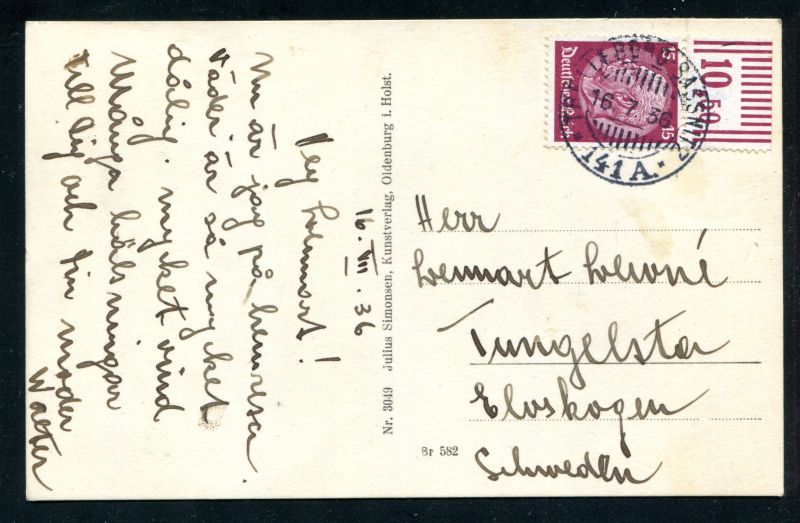 16. VII. 36
Hej Lennart!
Nu är jag på hemresa.
väder är så mycket
dålig. mycket vind
Många hälsningar
till dig och din moder
Walter
Nr. 3049 Julius Simonsen, Kunstverlag, Oldenburg i. Holst.
Br 582
Deutsches Reich
15
15
16.7.36
141 A.
10
50
Herr
Lennart
Tungelsta
Elvskogen
Schweden